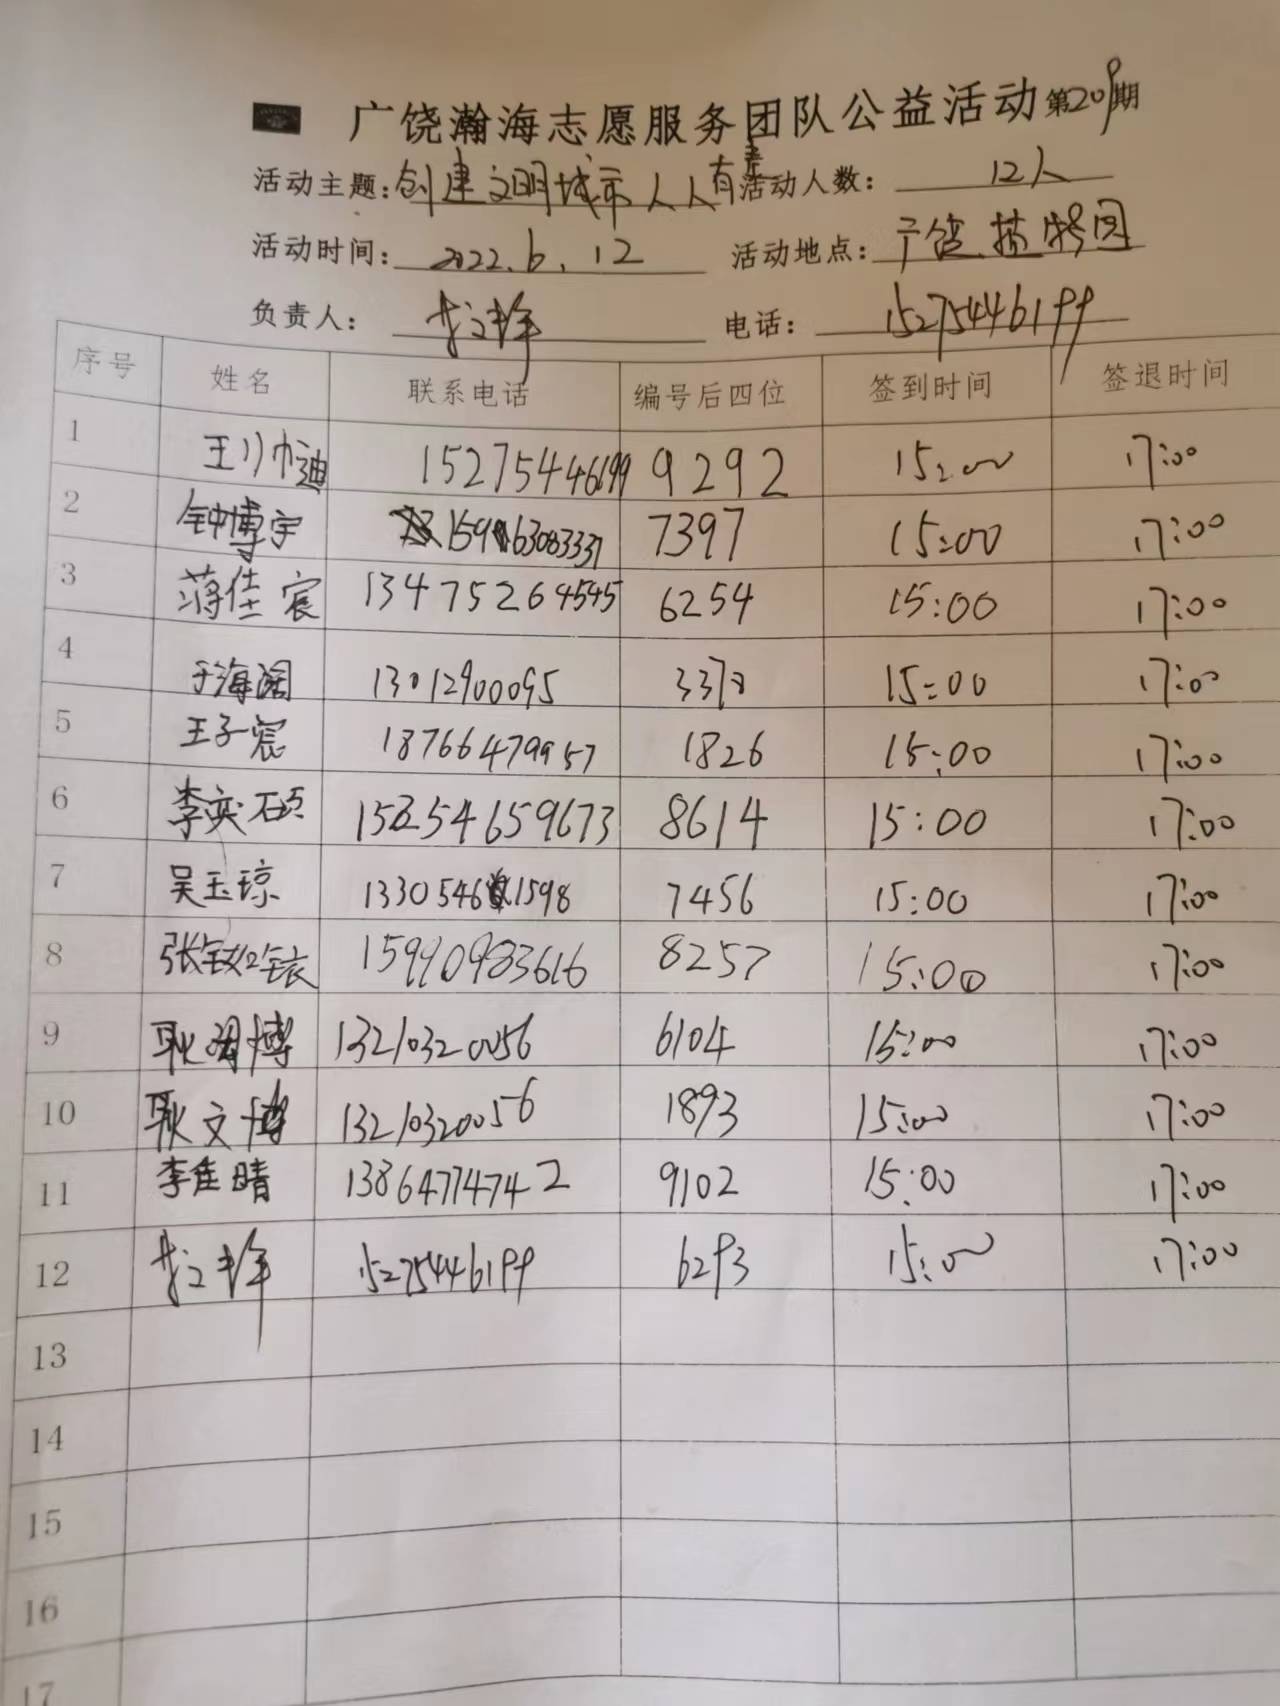 广饶瀚海志愿服务团队公益活动第209期
活动主题：创建文明城市人人有责 活动人数：12人
活动时间：2022.6.12 活动地点：广饶
负责人： 电话：15275446199
序号 姓名 联系电话 编号后四位 签到时间 签退时间
1 15275446199 9292 15:00 17:00
2 钟博宇 15963083337 7397 15:00 17:00
3 蒋佳宸 6254 15:00 17:00
4 于海阔 13012900095 15:00 17:00
5 王子宸 18766479957 1826 15:00 17:00
6 李奕硕 8614 15:00 17:00
7 吴玉琼 13305461598 7456 15:00 17:00
8 15990983616 8257 15:00 17:00
9 13210320056 6104 15:00 17:00
10 耿文博 13210320056 1893 15:00 17:00
11 李佳晴 13864774742 9102 15:00 17:00
12 15275446199 6293 15:00 17:00
13
14
15
16
17